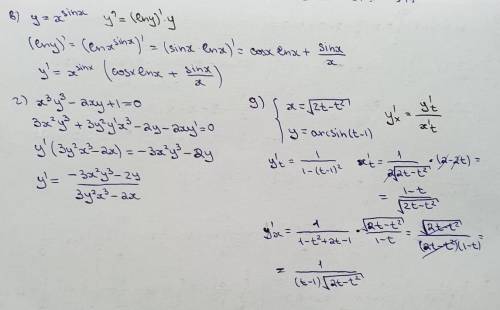 в) y = x^sinx   y' = (lny)'·y
(lny)' = (lnx^sinx)' = (sinx·lnx)' = cosx lnx + sinx/x
y' = x^sinx (cosx lnx + sinx/x)
г) x³y³ - 2xy + 1 = 0
3x²y³ + 3y²y'x³ - 2y - 2xy' = 0
y'(3y²x³ - 2x) = -3x²y³ - 2y
y' = (-3x²y³ - 2y)/(3y²x³ - 2x)
g) { x = √(2t - t²)
y = arcsin(t-1)
y'x = y't/x't
y't = 1/(1-(t-1)²)   x't = 1/(2√(2t-t²)) · (2-2t) =
= (1-t)/√(2t-t²)
y'x = 1/(1-t²+2t-1) · √(2t-t²)/(1-t) = √(2t-t²)/((2t-t²)(1-t)) =
= 1/((t-1)√(2t-t²))